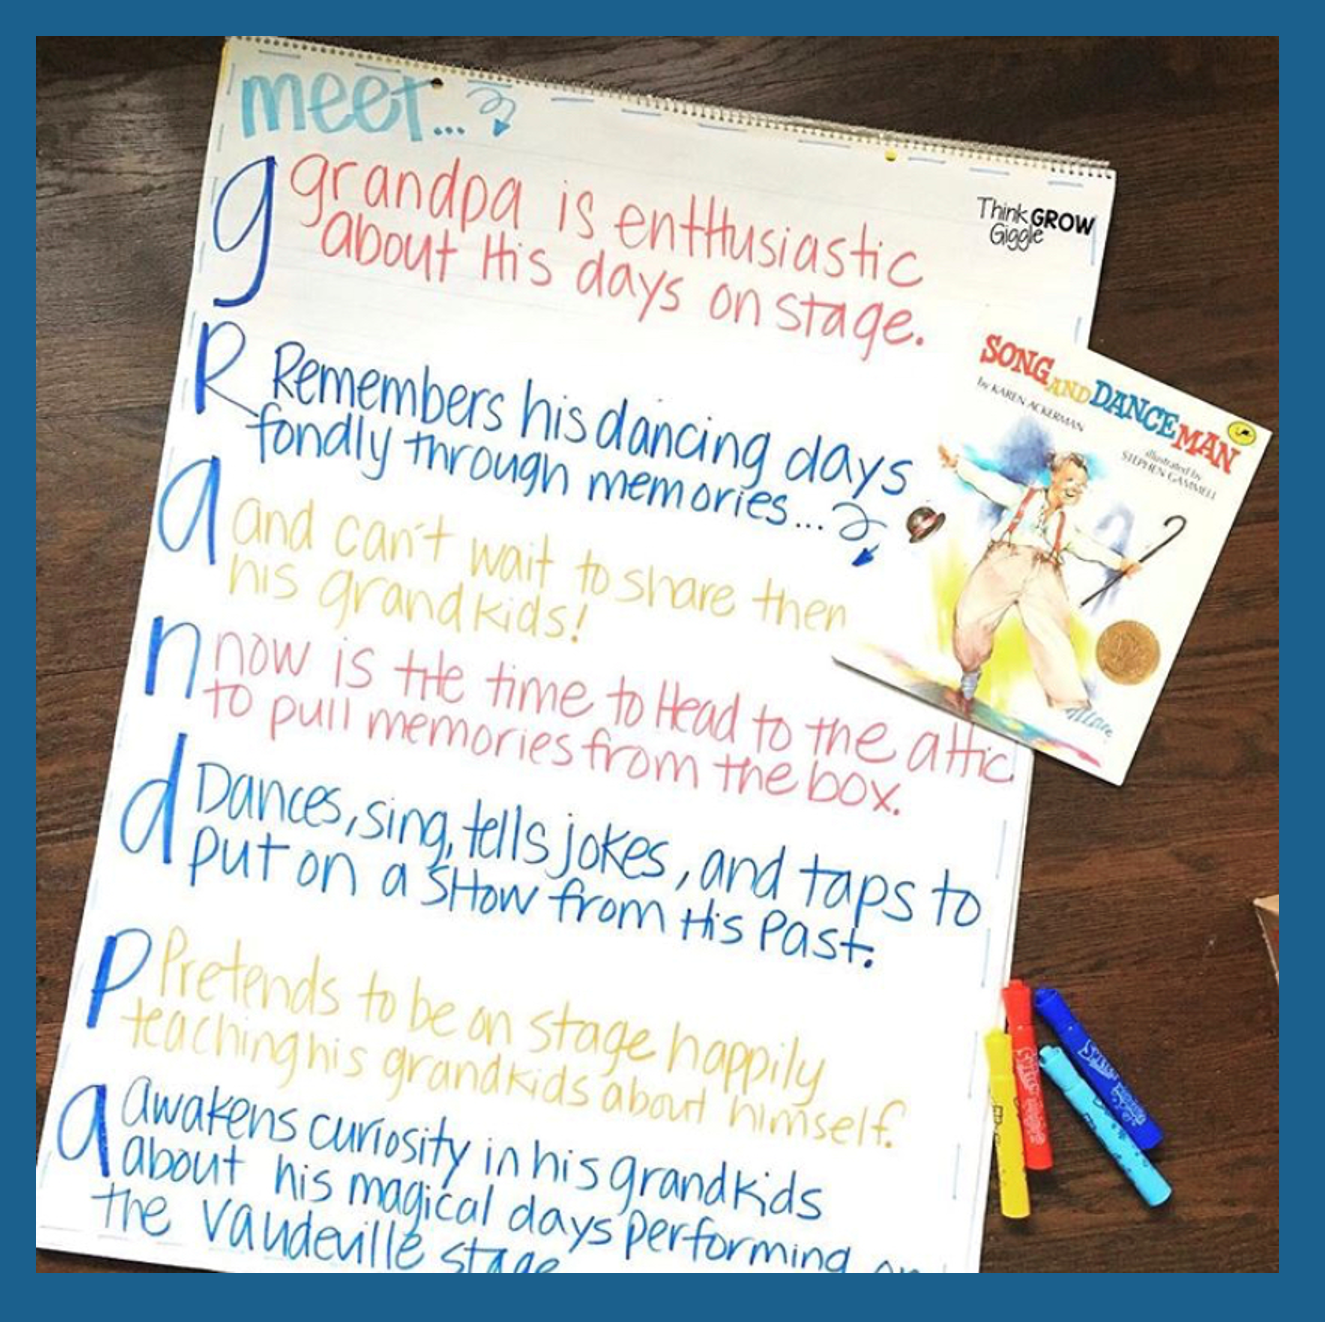 meet...
g grandpa is enthusiastic
about His days on stage.
R Remembers his dancing days
fondly through memories...
a and can't wait to share then
his grandkids!
n now is tHe time to Head to the attic
to pull memories from the box.
d Dances, sing, tells jokes, and taps to
put on a SHow from His Past.
P Pretends to be on stage happily
teaching his grandkids about himself.
a awakens curiosity in his grandkids
about his magical days performing on
the vaudeville stage
Think GROW
Giggle
SONG AND DANCE MAN
by KAREN ACKERMAN
illustrated by
STEPHEN GAMMELL